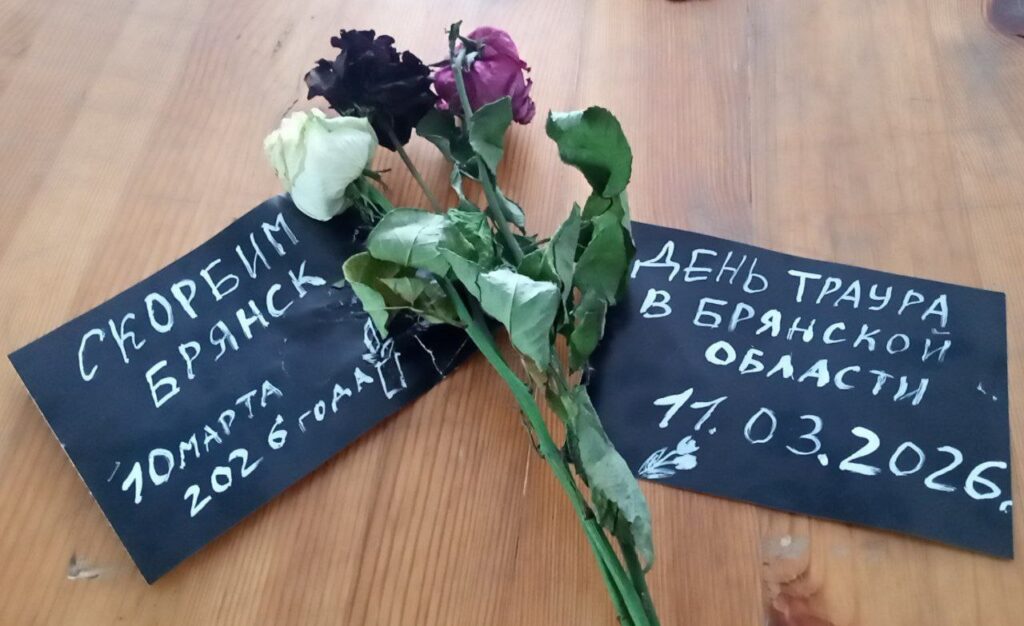 СКОРБИМ
БРЯНСК
10 МАРТА
2026 ГОДА
ДЕНЬ ТРАУРА
В БРЯНСКОЙ
ОБЛАСТИ
11.03.2026.